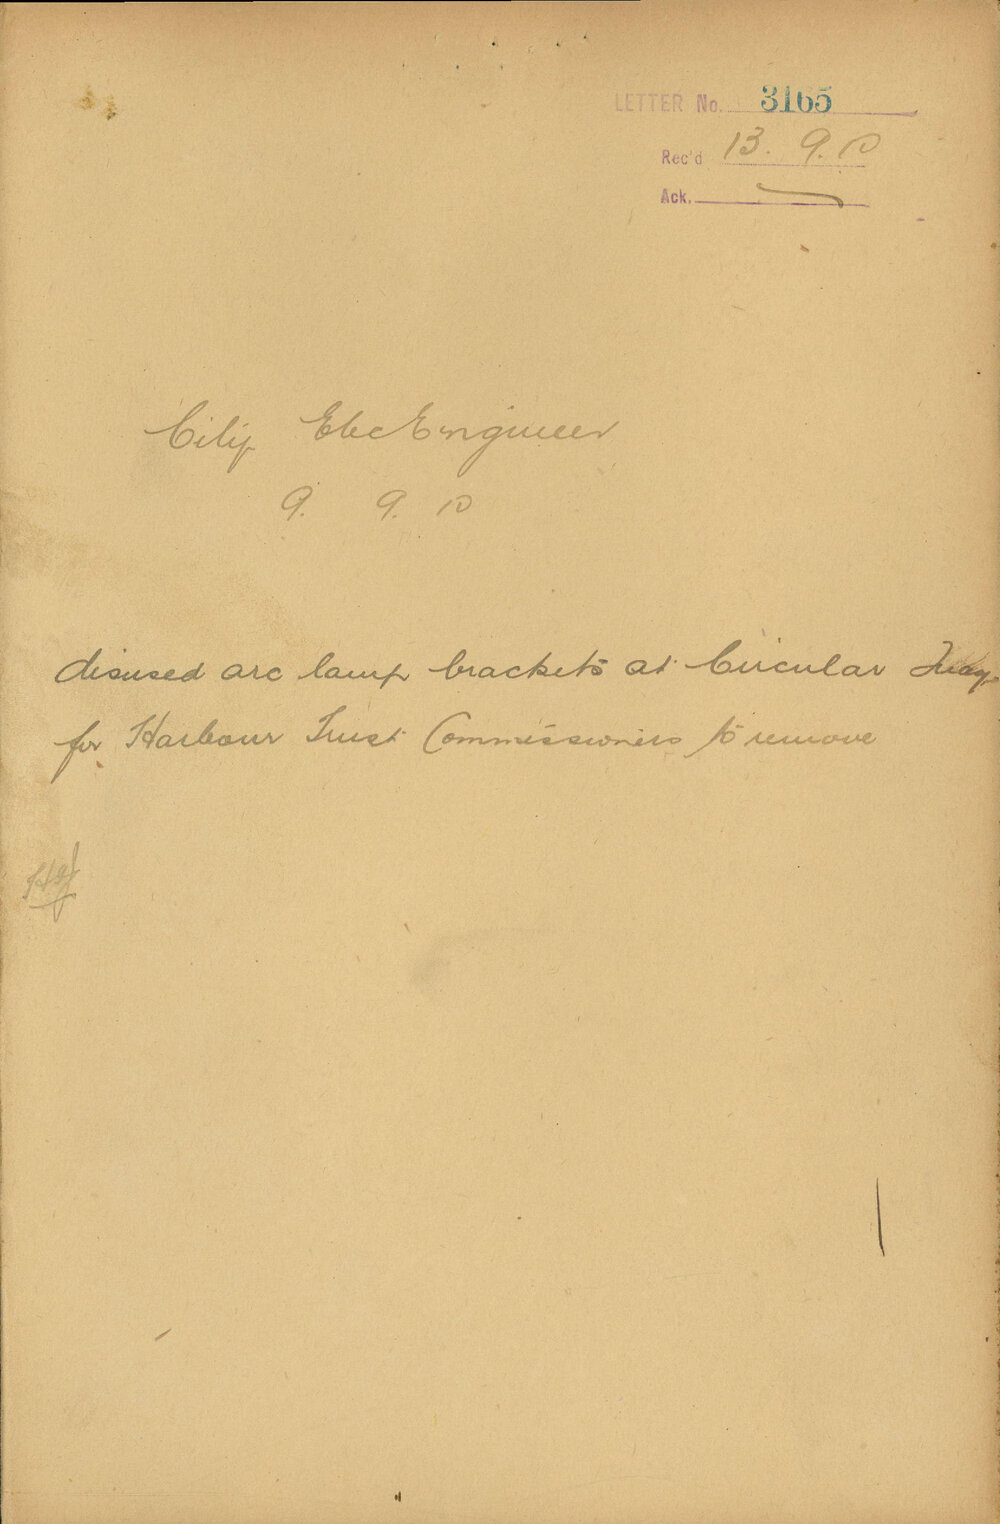 LETTER No. 3165
Rec'd 13. 9. 10
Ack.
City Elec Engineer
9. 9. 10
disused arc lamp brackets at Circular Quay
for Harbour Trust Commissioners to remove